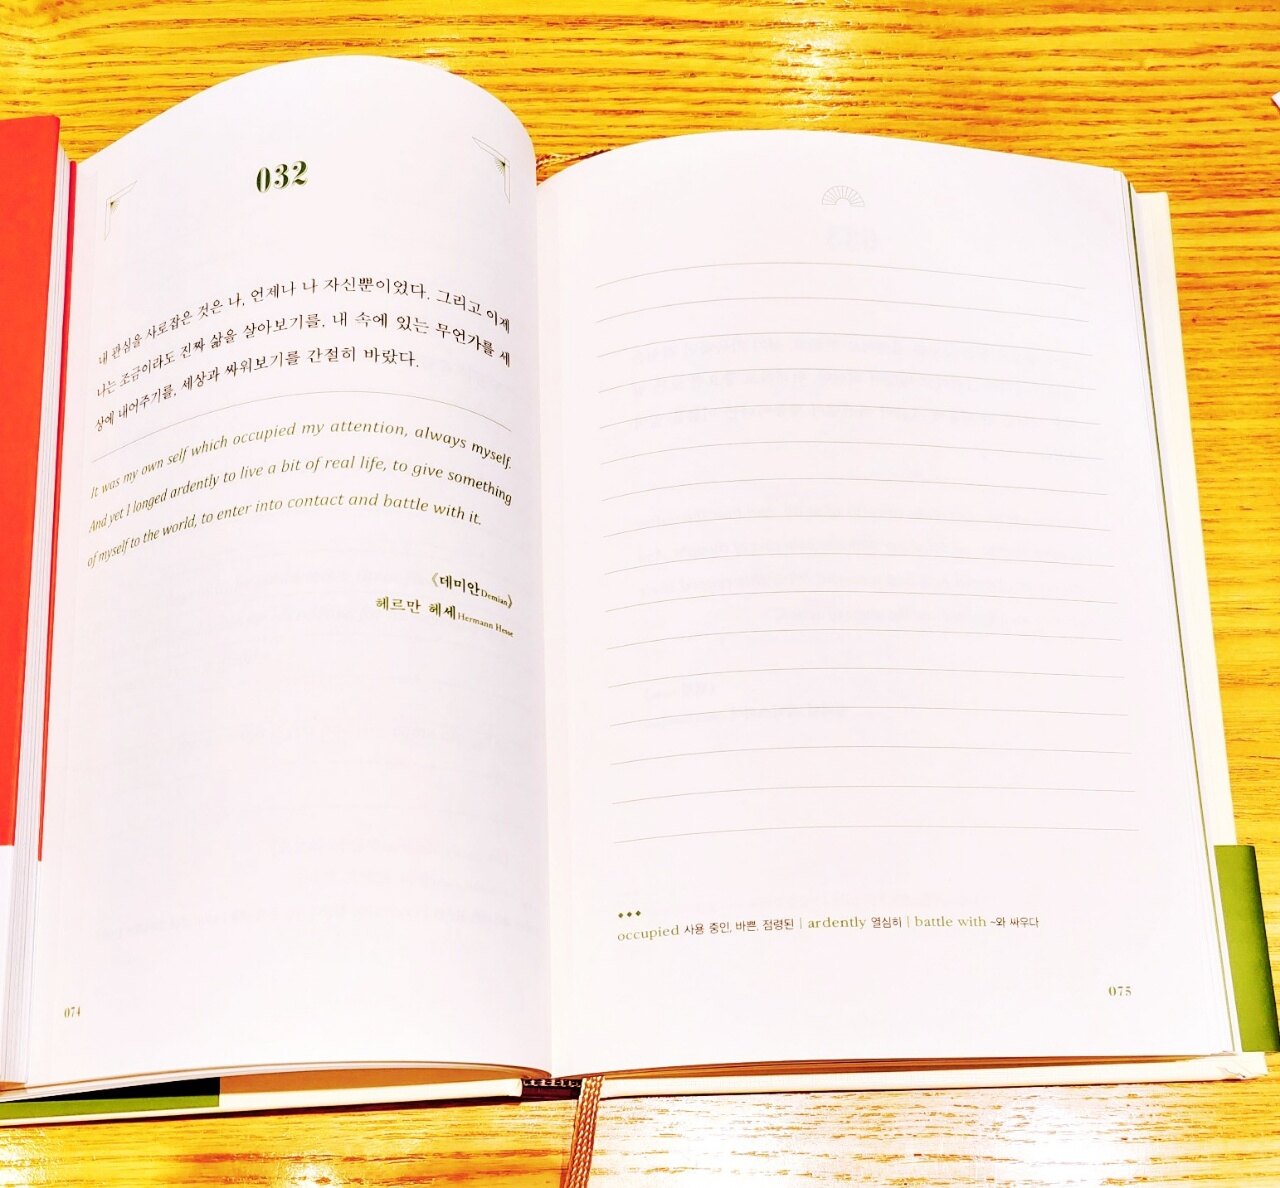 032
내 관심을 사로잡은 것은 나, 언제나 나 자신뿐이었다. 그리고 이제
나는 조금이라도 진짜 삶을 살아보기를, 내 속에 있는 무언가를 세
상에 내어주기를, 세상과 싸워보기를 간절히 바랐다.
It was my own self which occupied my attention, always myself.
And yet I longed ardently to live a bit of real life, to give something
of myself to the world, to enter into contact and battle with it.
《데미안Demian》
헤르만 헤세Hermann Hesse
074
occupied 사용 중인, 바쁜, 점령된 | ardently 열심히 | battle with ~와 싸우다
075